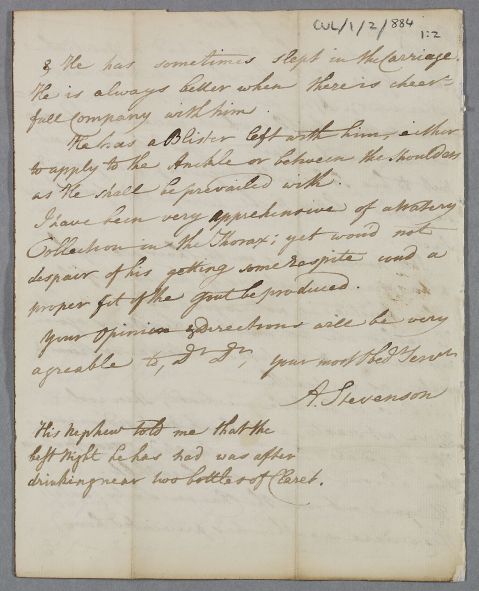 CUL/1/2/884
1:2
& He has sometimes slept in the Carriage.
He is always better when there is chear=
full Company with him.
He has a Blister left with him, either
to apply to the Ancle or between the shoulders
as He shall be prevailed with.
I have been very apprehensive of a Watery
Collection in the Thorax; yet wou'd not
despair of his getting some Raspite cou'd a
proper fit of the Gout be produced.
Your Opinion & Directions will be very
agreable to, Dr Dr, Your most Obedt Servt
A. Stevenson
His Nephew told me that the
best Night he has had was after
drinking near two bottles of Claret.